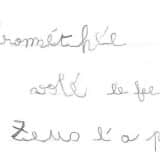 rométhée
volé le fe
Zeus l'a p